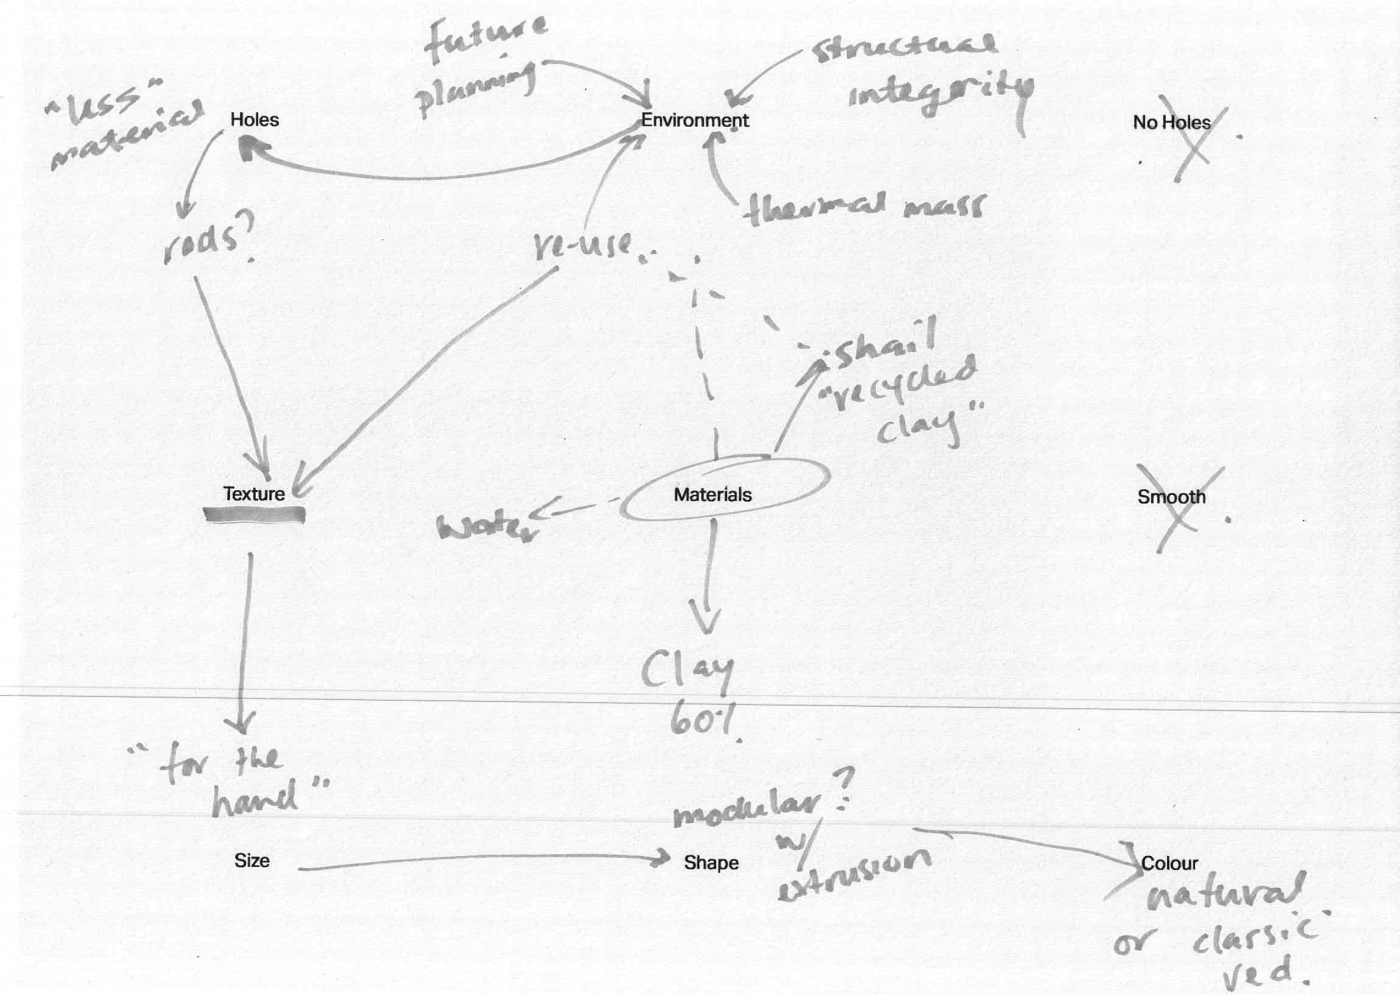 future
planning
structual
integerity
"less"
material
Holes
Environment
No Holes
thermal mass
rods?
re-use.
shail
"recycled
clay"
Texture
Materials
Smooth
water
Clay
60%.
"for the
hand"
modular?
w/
extrusion
Size
Shape
Colour
natural
or classic
red.